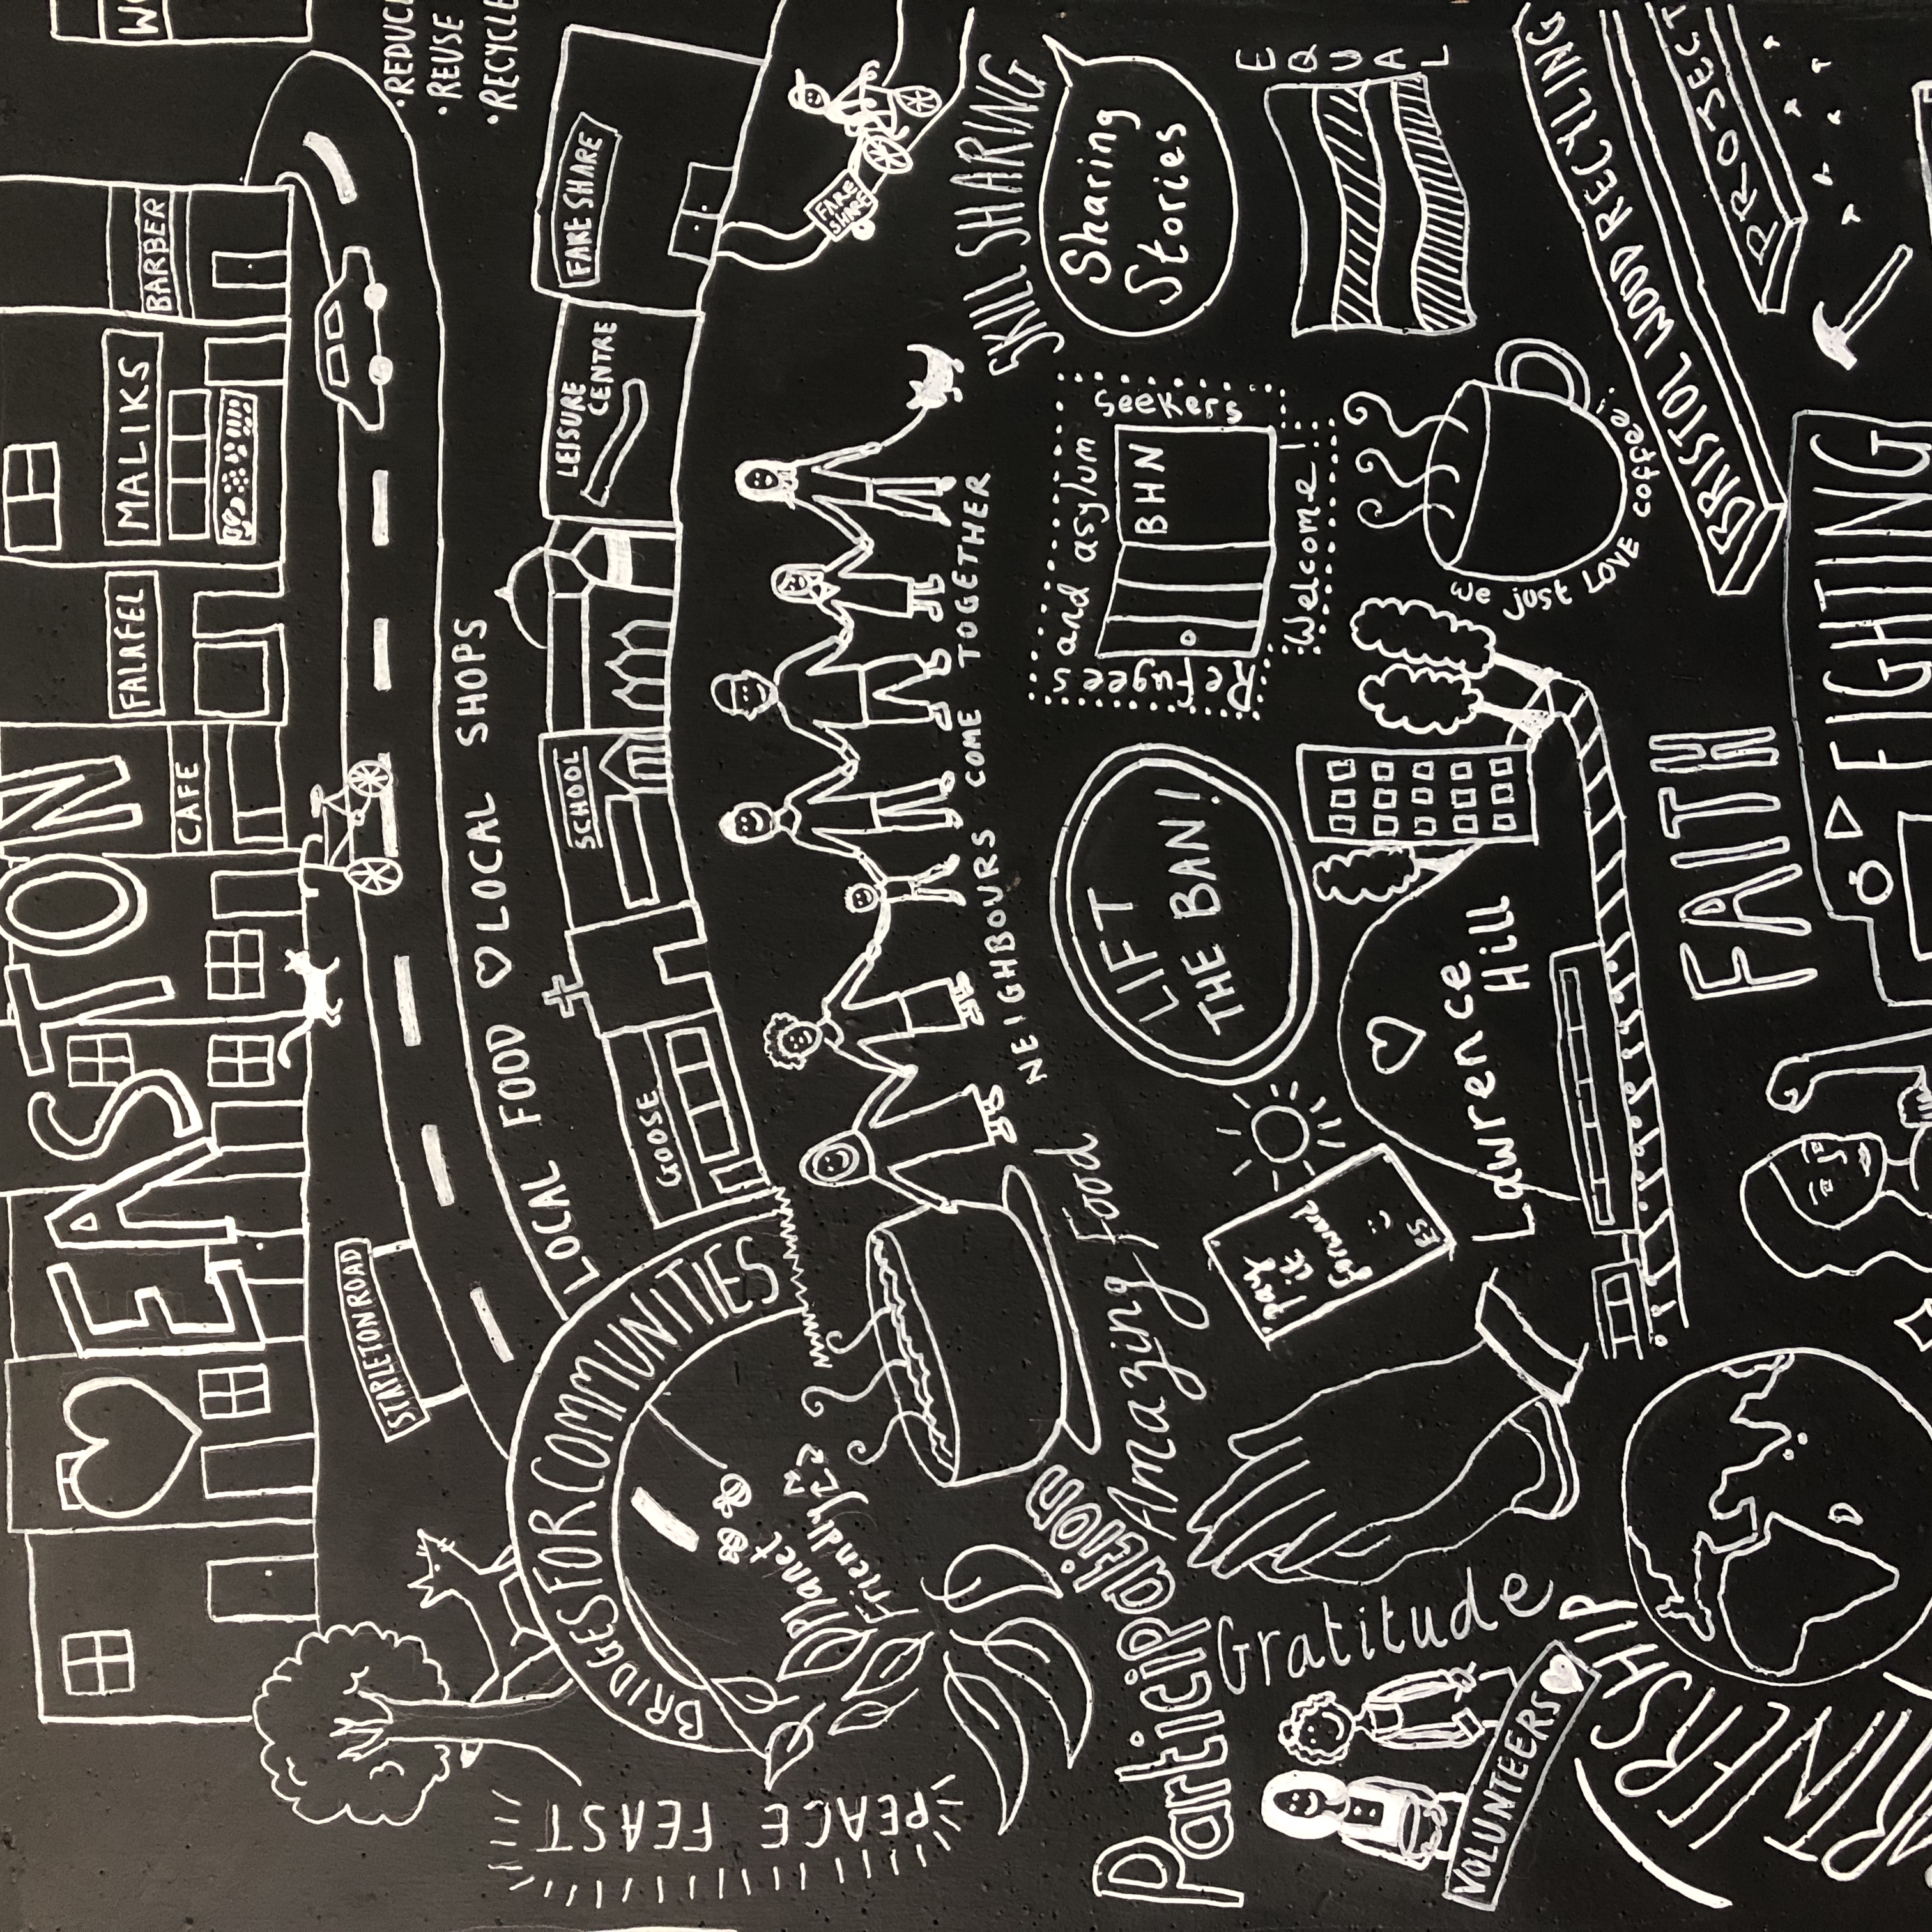 WO
♡ EASTON
CAFE
FALAFEL
MALIKS
BARBER
STAPLETON ROAD
• REDUC
• REUSE
• RECYCLE
LOCAL FOOD ♡ LOCAL SHOPS
BRIDGES FOR COMMUNITIES
GOOSE
SCHOOL
LEISURE
CENTRE
FARE SHARE
FARE
SHARE
PEACE FEAST
Planet
Friendly
NEIGHBOURS COME TOGETHER
SKILL SHARING
Sharing
Stories
Participation
Amazing Food
LIFT
THE BAN!
Refugees
and asylum
Seekers
Welcome!
BHN
EQUAL
Gratitude
Pay
it
forward
£5
♡
Lawrence
Hill
We just LOVE coffee!
BRISTOL WOOD RECYLING
PROJECT
VOLUNTEERS ♡
RTNERSHIP
FAITH
FIGHTING